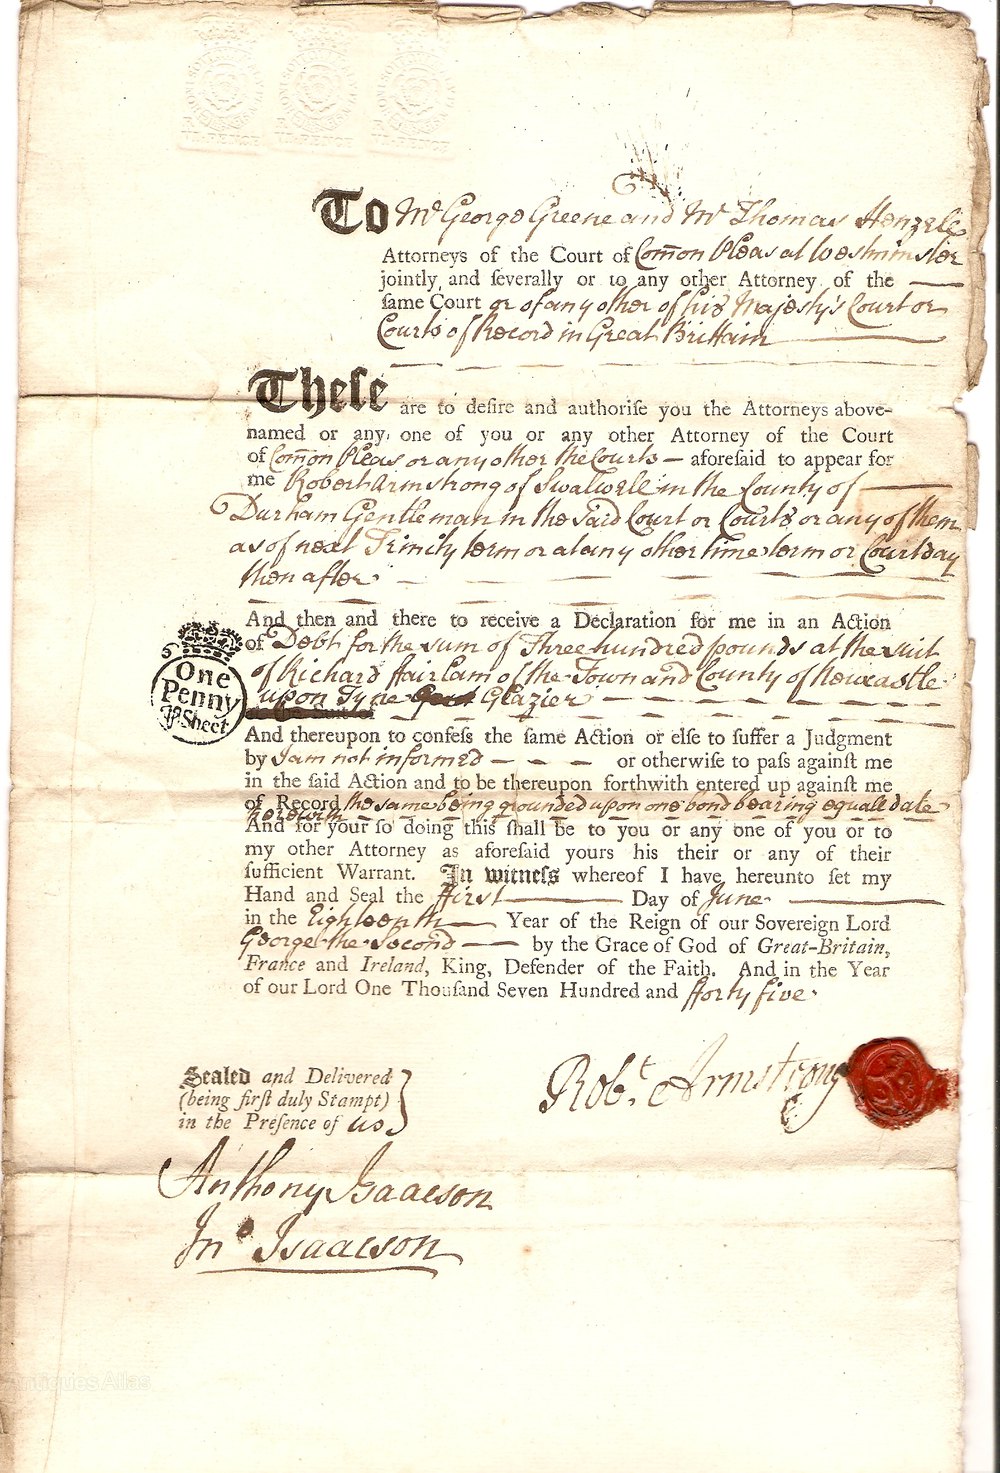 VI PENCE VI PENCE VI PENCE
To Mr George Greene and Mr Thomas Henzell
Attorneys of the Court of Com̄on Pleas at Westminster
jointly and ſeverally or to any other Attorney of the
ſame Court or of any other of his Majesty's Court or
Courts of Record in Great Brittain
Theſe are to deſire and authoriſe you the Attorneys above-
named or any one of you or any other Attorney of the Court
of Com̄on Pleas or any other the Courts — aforeſaid to appear for
me Robert Armstrong of Swalwell in the County of
Durham Gentleman in the Said Court or Courts or any of them
as of next Trinity term or at any other time term or Court day
then after
And then and there to receive a Declaration for me in an Action
of Debt for the sum of Three hundred pounds at the suit
of Richard ffairlam of the Town and County of Newcastle
upon Tyne Glazier
One
Penny
Pr Sheet
And thereupon to confeſs the ſame Action or elſe to ſuffer a Judgment
by I am not informed — — — or otherwiſe to paſs againſt me
in the ſaid Action and to be thereupon forthwith entered up againſt me
of Record the same being grounded upon one bond bearing equall date
herewith
And for your ſo doing this ſhall be to you or any one of you or to
my other Attorney as aforeſaid yours his their or any of their
ſufficient Warrant. In witneſs whereof I have hereunto ſet my
Hand and Seal the ffirst Day of June
in the Eighteenth Year of the Reign of our Sovereign Lord
George the Second — by the Grace of God of Great-Britain,
France and Ireland, King, Defender of the Faith. And in the Year
of our Lord One Thouſand Seven Hundred and fforty five
Sealed and Delivered
(being firſt duly Stampt)
in the Preſence of us
Robt. Armstrong
Anthony Isaacson
Jno Isaacson
Antiques Atlas